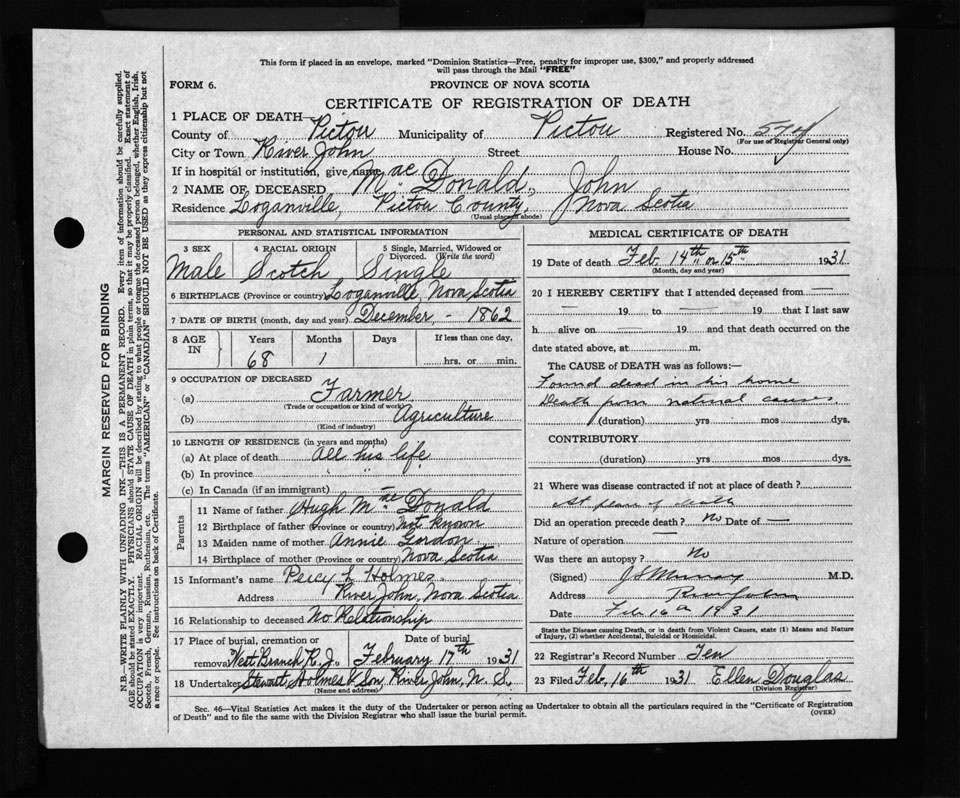 This form if placed in an envelope, marked "Dominion Statistics—Free, penalty for improper use, $300," and properly addressed
will pass through the Mail "FREE"
FORM 6.
PROVINCE OF NOVA SCOTIA
CERTIFICATE OF REGISTRATION OF DEATH
1 PLACE OF DEATH—
County of Pictou Municipality of Pictou Registered No. 574
(For use of Registrar General only)
City or Town River John Street House No.
If in hospital or institution, give name
2 NAME OF DECEASED Mac Donald, John
Residence Loganville, Pictou County, Nova Scotia
(Usual place of abode)
PERSONAL AND STATISTICAL INFORMATION
3 SEX 4 RACIAL ORIGIN 5 Single, Married, Widowed or Divorced. (Write the word)
Male Scotch Single
6 BIRTHPLACE (Province or country) Loganville, Nova Scotia
7 DATE OF BIRTH (month, day and year) December, - 1862
8 AGE IN Years Months Days If less than one day,
68 1 hrs. or min.
9 OCCUPATION OF DECEASED
(a) Farmer
(Trade or occupation or kind of work)
(b) Agriculture
(Kind of industry)
10 LENGTH OF RESIDENCE (in years and months)
(a) At place of death All his life
(b) In province " "
(c) In Canada (if an immigrant)
Parents
11 Name of father Hugh Mac Donald
12 Birthplace of father (Province or country) Not known
13 Maiden name of mother Annie Gordon
14 Birthplace of mother (Province or country) Nova Scotia
15 Informant's name Percy L Holmes
Address River John, Nova Scotia
16 Relationship to deceased No Relationship
17 Place of burial, cremation or removal Date of burial
West Branch R. J. February 17th 1931
18 Undertaker Stewart Holmes & Son, River John, N. S.
(Name and address)
MEDICAL CERTIFICATE OF DEATH
19 Date of death Feb 14th or 15th 1931
(Month, day and year)
20 I HEREBY CERTIFY that I attended deceased from —
— 19 to — 19 that I last saw
h alive on — 19 and that death occurred on the
date stated above, at m.
The CAUSE of DEATH was as follows:—
Found dead in his home
Death from natural causes
(duration) yrs mos dys.
CONTRIBUTORY
(duration) yrs. mos. dys.
21 Where was disease contracted if not at place of death?
At place of death
Did an operation precede death? no Date of —
Nature of operation —
Was there an autopsy? No
(Signed) J S Murray M.D.
Address River John
Date Feb 16th 1931
State the Disease causing Death, or in death from Violent Causes, state (1) Means and Nature of Injury, (2) whether Accidental, Suicidal or Homicidal.
22 Registrar's Record Number Ten
23 Filed Feb, 16th 1931 Ellen Douglas
(Division Registrar)
Sec. 46—Vital Statistics Act makes it the duty of the Undertaker or person acting as Undertaker to obtain all the particulars required in the "Certificate of Registration
of Death" and to file the same with the Division Registrar who shall issue the burial permit.
(OVER)
MARGIN RESERVED FOR BINDING
N.B.—WRITE PLAINLY WITH UNFADING INK—THIS IS A PERMANENT RECORD. Every item of information should be carefully supplied.
AGE should be stated EXACTLY. PHYSICIANS should STATE CAUSE OF DEATH in plain terms, so that it may be properly classified. Exact statement of
OCCUPATION is very important. RACIAL ORIGIN will be described by stating to what people or tongue the deceased person belonged, whether English, Irish,
Scotch, French, German, Russian, Ruthenian, etc. The terms "AMERICAN" or "CANADIAN" SHOULD NOT BE USED as they express citizenship but not
a race or people. See instructions on back of Certificate.